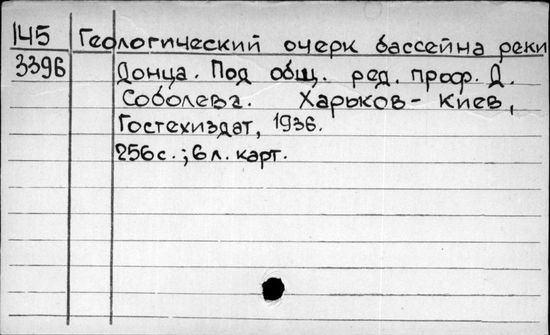 145 Геологический очерк бассейна реки
3396 Донца. Под общ. ред. проф. Д.
Соболева. Харьков - Киев,
Гостехиздат, 1936.
256 с.; 6 л. карт.